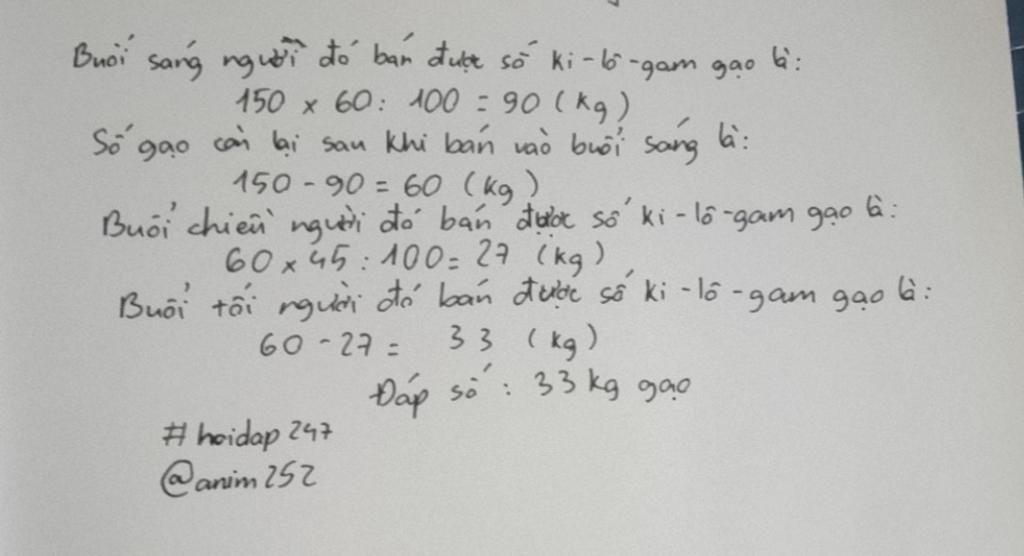 Buổi sáng người đó bán được số ki-lô-gam gạo là:
150 x 60 : 100 = 90 (kg)
Số gạo còn lại sau khi bán vào buổi sáng là:
150 - 90 = 60 (kg)
Buổi chiều người đó bán được số ki-lô-gam gạo là:
60 x 45 : 100 = 27 (kg)
Buổi tối người đó bán được số ki-lô-gam gạo là:
60 - 27 = 33 (kg)
Đáp số : 33 kg gạo
# hoidap 247
@anim252